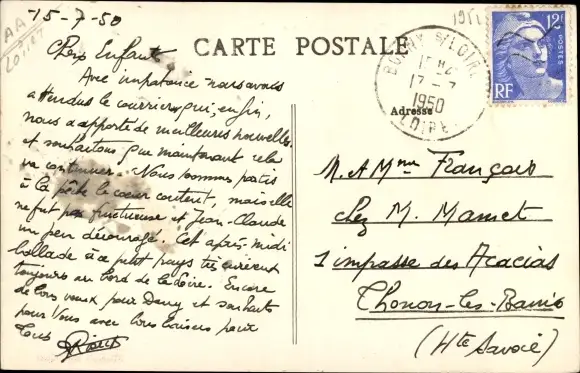 AA
Loiret
15-7-50
1951
CARTE POSTALE
Adresse
12F
POSTES
RF
17-7
1950
LOIRE
Chers Enfants
Avec impatience nous avons
attendus le courrier qui, enfin,
nous a apporté de meilleures nouvelles.
et souhaitons que maintenant cela
va continuer. Nous sommes partis
à la pêche le cœur content, mais elle
ne fut pas fructueuse et Jean-Claude
un peu découragé. Cet après-midi
ballade à ce petit pays très
toujours au bord de la Loire. Encore
de bons vœux pour Dany et souhaits
pour Vous avec bons baisers pour
Tous
M. & Mme François
chez M. Mamet
1 impasse des Acacias
Thonon-les-Bains
(Hte Savoie)